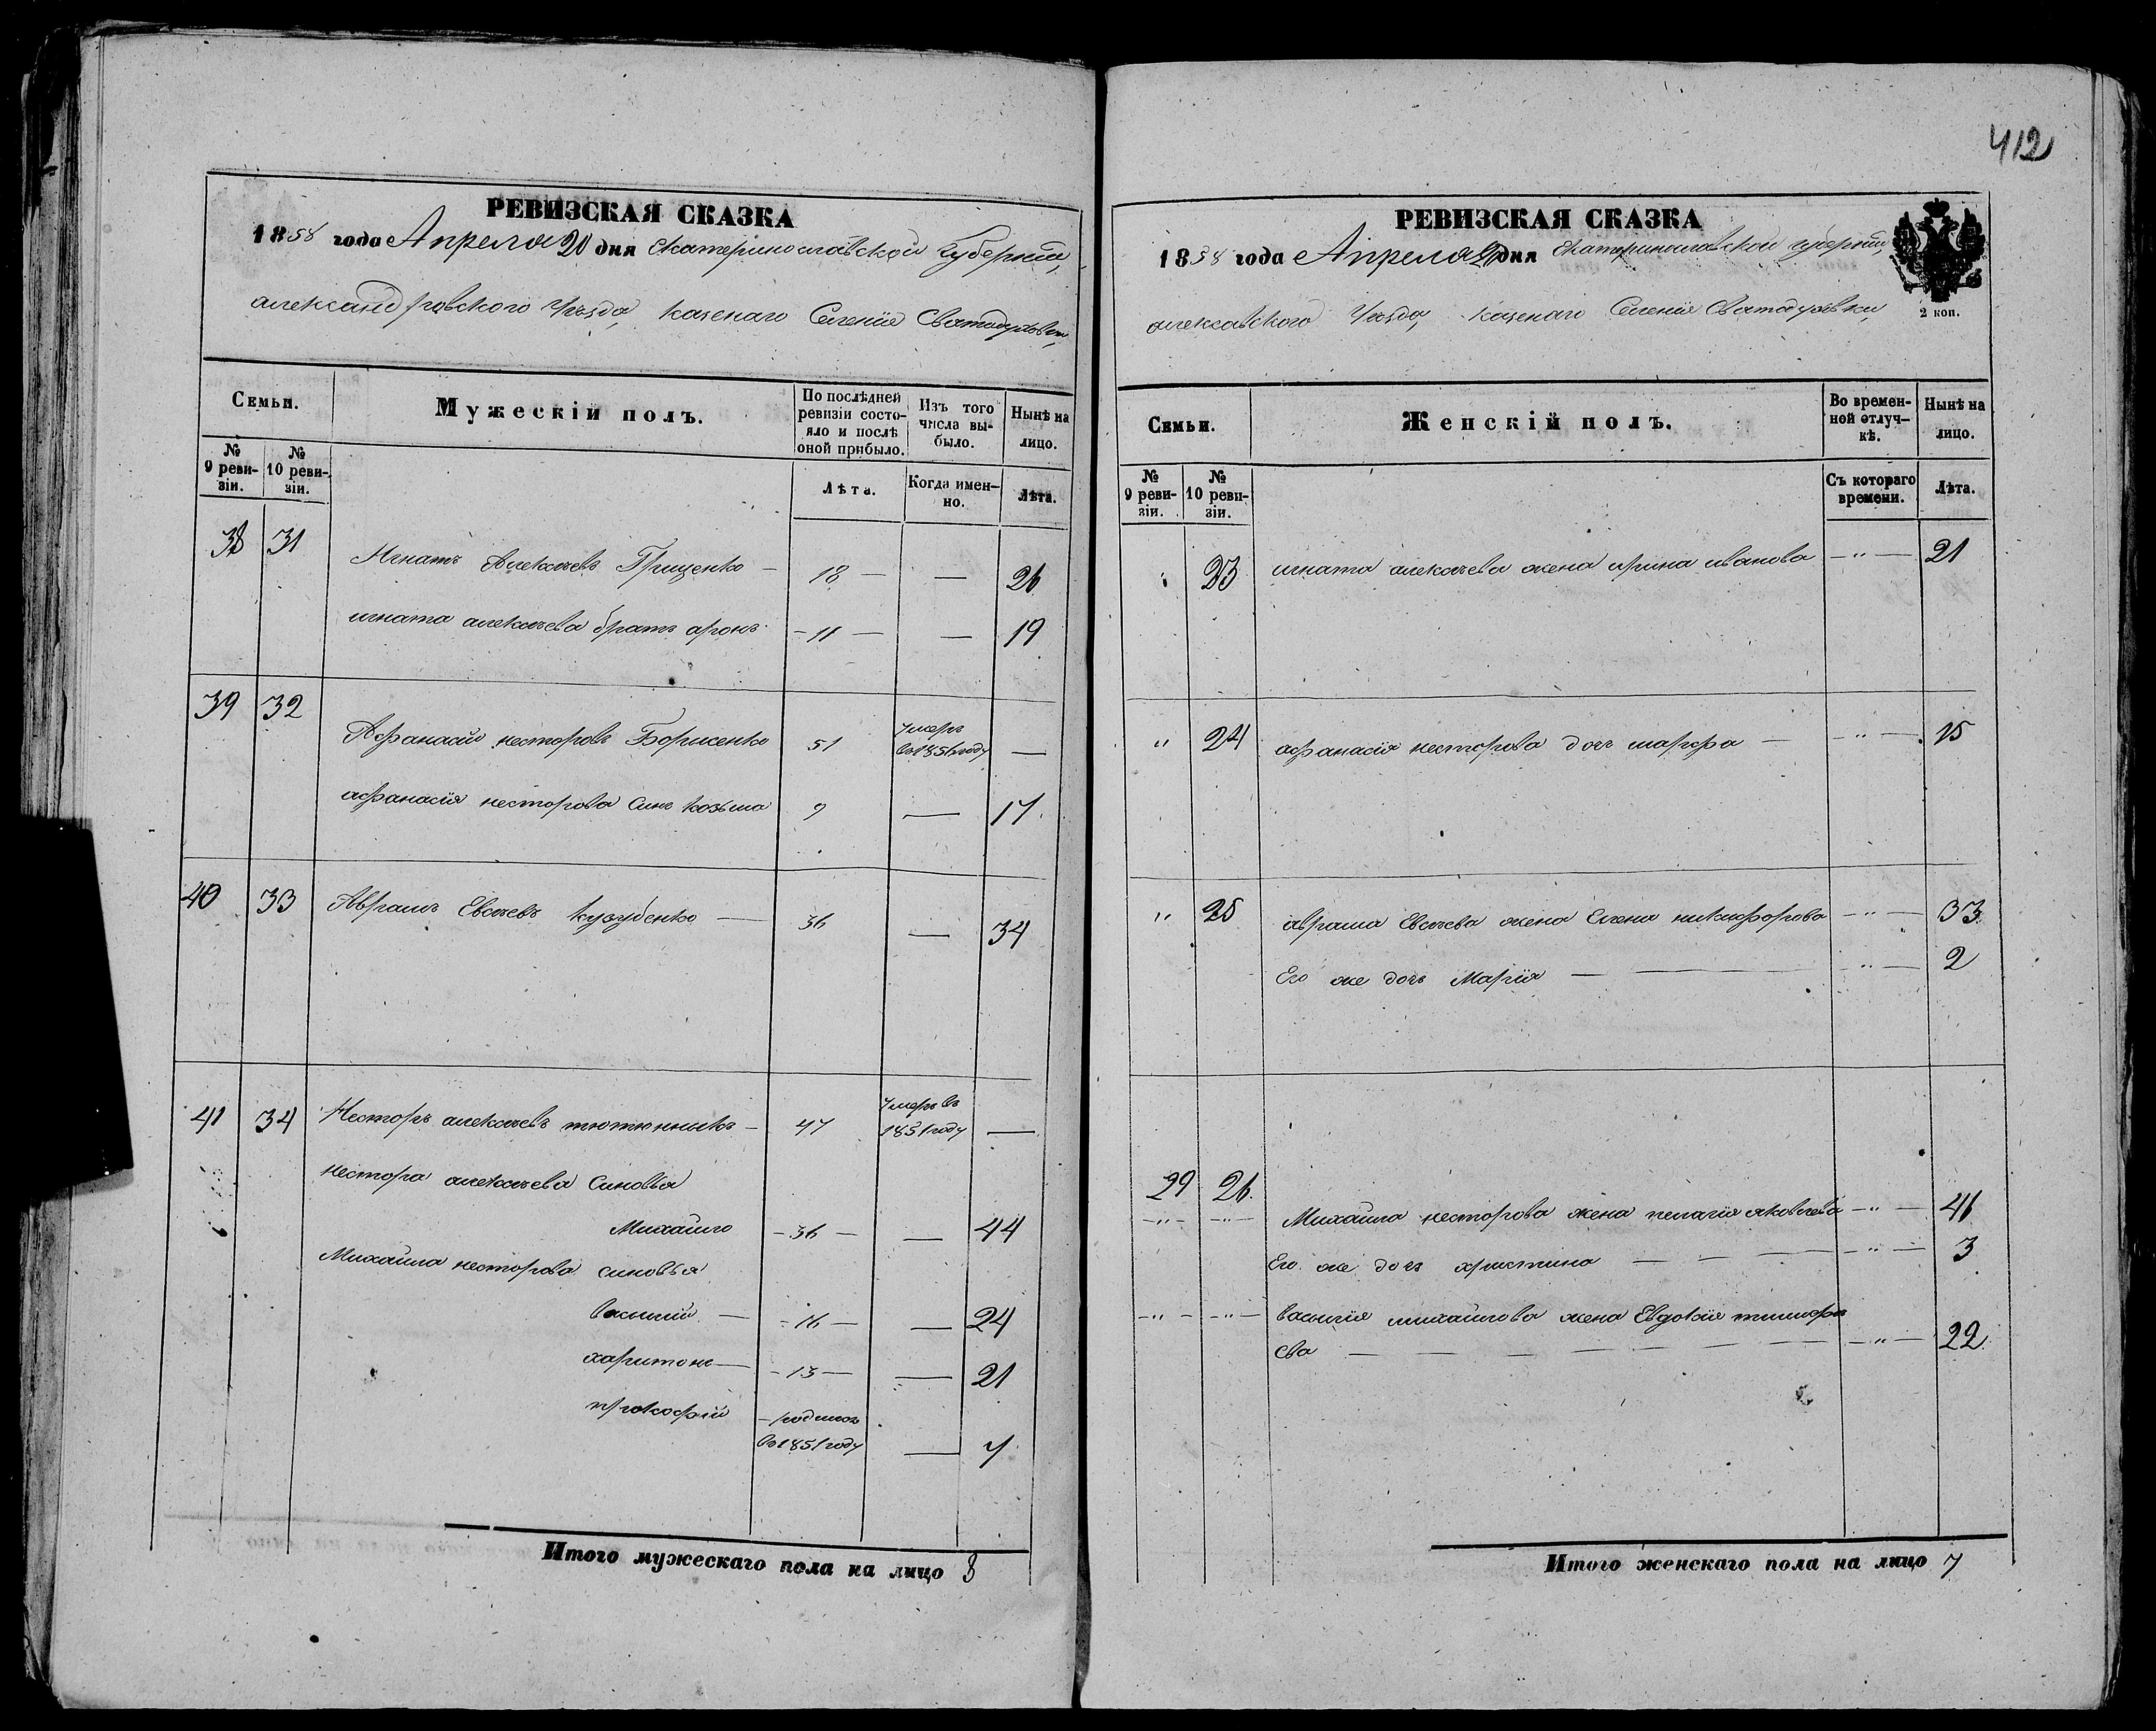 412
РЕВИЗСКАЯ СКАЗКА
1858 года Апреля 20 дня Екатеринославской губернии,
александровского Уезда, казенаго Селения Святодуховки,
Семьи.
Мужескій полъ.
По послѣдней ревизіи состояло и послѣ оной прибыло.
Изъ того числа выбыло.
Нынѣ на лицо.
№ 9 ревизіи.
№ 10 ревизіи.
Лѣта.
Когда именно.
Лѣта.
38 31 Игнатъ Алексѣевъ Грищенко — 18 — — 26
игната алексѣева братъ аронъ — 11 — — 19
39 32 Афанасий несторовъ Борисенко 51 Умеръ въ 1856 году —
афанасія несторова Синъ козьма 9 — 17
40 33 Аврамъ Евсѣевъ — 36 — 34
41 34 Несторъ алексѣевъ тютюнникъ — 47 Умеръ въ 1851 году —
нестора алексѣева Синовья
Михайло — 36 — — 44
Михайла несторова синовья
василий — — 16 — — 24
харитонъ — — 13 — — 21
прокофий — родился въ 1851 году — 7
Итого мужескаго пола на лицо 8
РЕВИЗСКАЯ СКАЗКА
1858 года Апреля дня Екатеринославской губернии,
Уезда, казенаго Селения Святодуховки,
2 коп.
Семьи.
Женскій полъ.
Во временной отлучкѣ.
Нынѣ на лицо.
№ 9 ревизіи.
№ 10 ревизіи.
Съ котораго времени.
Лѣта.
" 23 игната алексѣева жена ирина иванова — " — 21
" 24 афанасія несторова дочь марфа — — " — 15
" 25 аврама Евсѣева жена Елена никифорова — " — 33
Его же дочь Марія — — — " — 2
29 26
— " — — " — Михайла несторова жена пелагія яковлева — " — 41
Его же дочь христина — — — — " — 3
— " — — " — василія михайлова жена Евдокія тимофѣ
ева — — — — — — — — " — 22
Итого женскаго пола на лицо 7